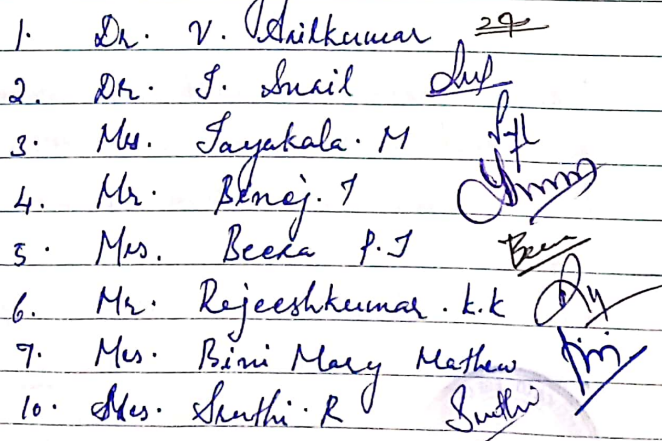 1. Dr. V. Anilkumar
2. Dr. J. Sunil
3. Mrs. Jayakala. M
4. Mr. Benoj. J
5. Mrs. Beena P.J Beena
6. Mr. Rejeeshkumar. k.k
7. Mrs. Bini Mary Mathew Bini
10. Mrs. Sruthi. R Sruthi